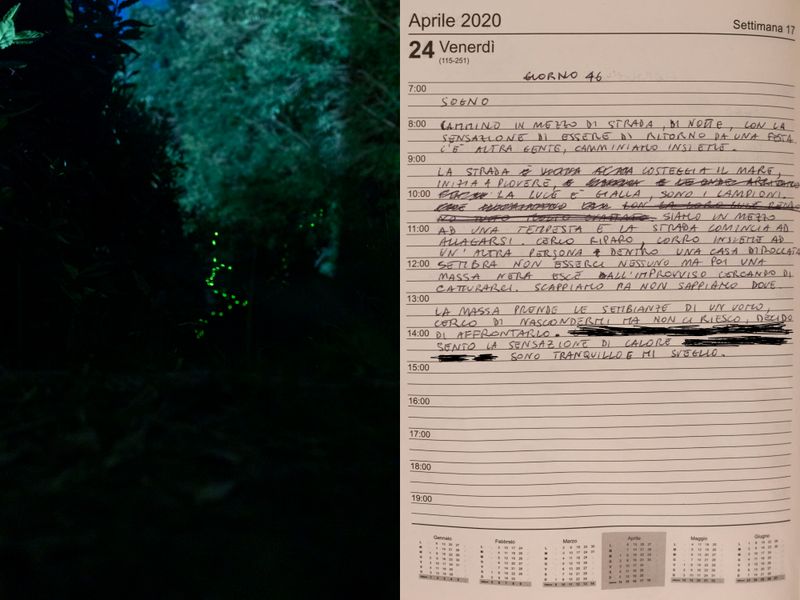 Aprile 2020
Settimana 17
24 Venerdì
(115-251)
GIORNO 46
7:00
SOGNO
8:00
CAMMINO IN MEZZO DI STRADA, DI NOTTE, CON LA
SENSAZIONE DI ESSERE DI RITORNO DA UNA FESTA.
C'È ALTRA GENTE, CAMMINIAMO INSIEME.
9:00
LA STRADA COSTEGGIA IL MARE,
INIZIA A PIOVERE,
10:00
LA LUCE È GIALLA, SONO I LAMPIONI.
SIAMO IN MEZZO
11:00
AD UNA TEMPESTA E LA STRADA COMINCIA AD
ALLAGARSI. CERCO RIPARO, CORRO INSIEME AD
UN'ALTRA PERSONA DENTRO UNA CASA DIROCCATA
12:00
SEMBRA NON ESSERCI NESSUNO MA POI UNA
MASSA NERA ESCE DALL'IMPROVVISO CERCANDO DI
CATTURARCI. SCAPPIAMO MA NON SAPPIAMO DOVE.
13:00
LA MASSA PRENDE LE SEMBIANZE DI UN UOMO,
CERCO DI NASCONDERMI MA NON CI RIESCO, DECIDO
14:00
DI AFFRONTARLO.
SENTO LA SENSAZIONE DI CALORE
SONO TRANQUILLO E MI SVEGLIO.
15:00
16:00
17:00
18:00
19:00
Gennaio
Febbraio
Marzo
Aprile
Maggio
Giugno